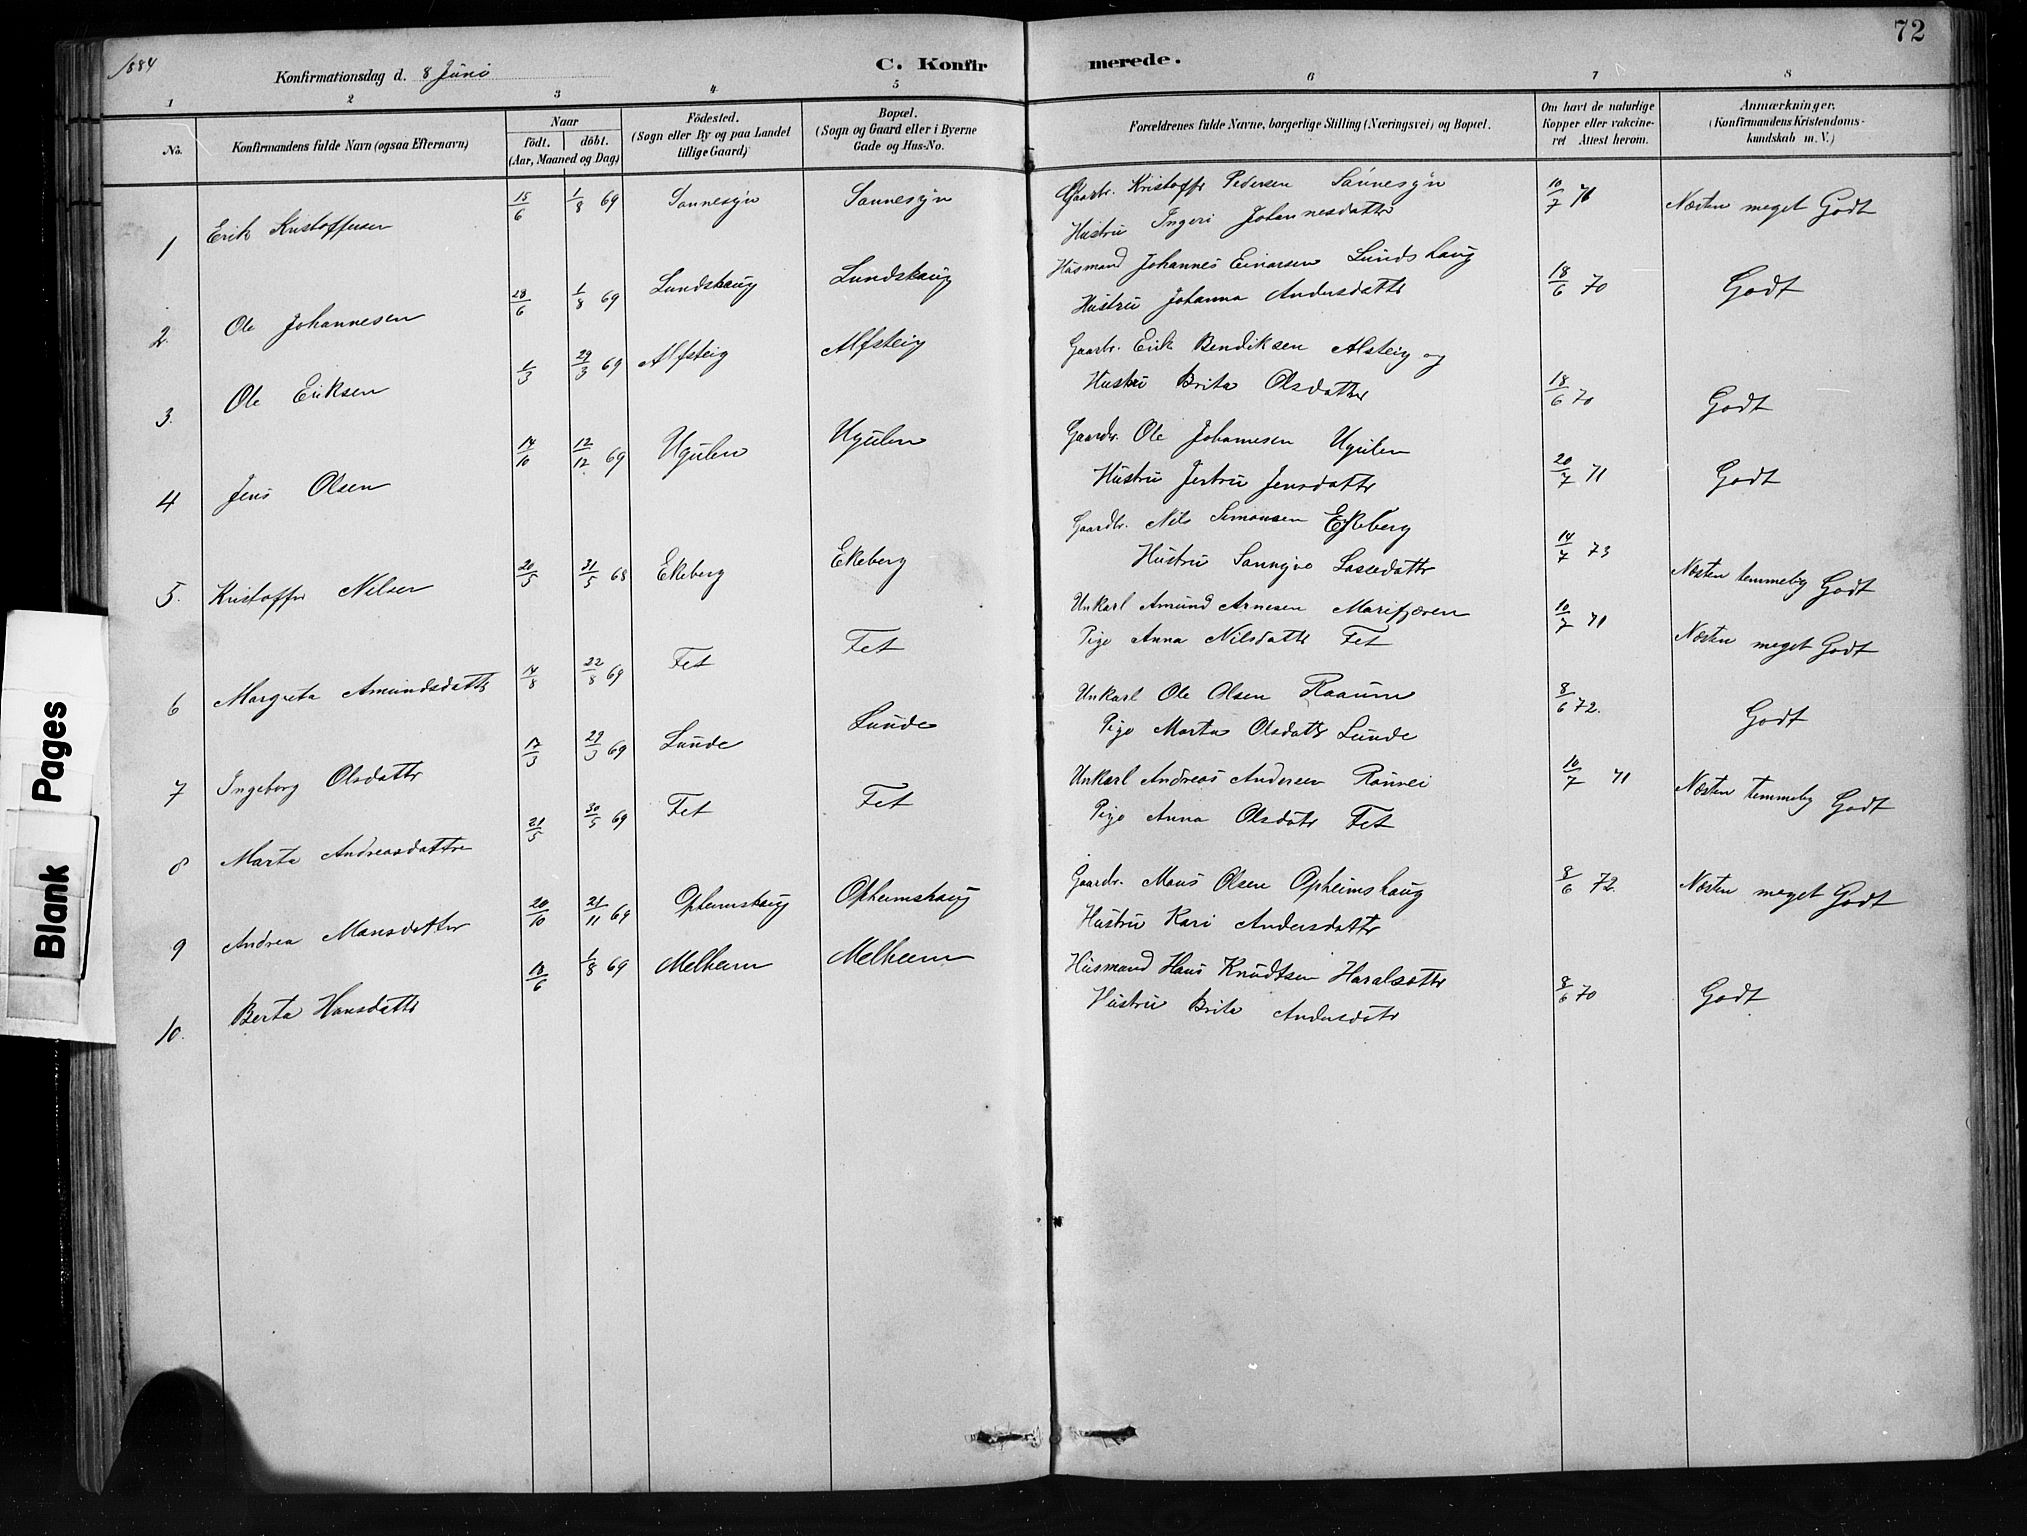 1884
Konfirmationsdag d. 8 Juni
C. Konfirmerede.
72
1 2 3 4 5 6 7 8
No.
Konfirmandens fulde Navn (ogsaa Efternavn)
Naar
födt. döbt.
(Aar, Maaned og Dag)
Födested.
(Sogn eller By og paa Landet
tillige Gaard)
Bopæl.
(Sogn og Gaard eller i Byerne
Gade og Hus-No.
Forældrenes fulde Navne, borgerlige Stilling (Næringsvei) og Bopæl.
Om havt de naturlige
Kopper eller vakcine-
ret Attest herom.
Anmærkninger.
(Konfirmandens Kristendoms-
kundskab m. V.)
1 Erik Kristoffersen 15/6 1/8 69 Sonnesyn Sonnesyn
Gaardbr. Kristoffer Pedersen Sonnesyn
Hustru Ingeri Johannesdatter
10/7 71 Næsten meget Godt
2. Ole Johannesen 28/6 1/8 69 Lundshaug Lundshaug
Husmand Johannes Einarsen Lundshaug
Hustru Johanna Andersdatter
18/6 70 Godt
3. Ole Eriksen 1/3 29/3 69 Alfsteig Alfsteig
Gaardbr. Erik Bendiksen Alsteig og
Hustru Brita Olsdatter
18/6 70 Godt
4 Jens Olsen 14/10 12/12 69 Ugulen Ugulen
Gaardbr. Ole Johannesen Ugulen
Hustru Jertru Jensdatter
20/7 71 Godt
5. Kristoffer Nilsen 20/5 31/5 68 Ekeberg Ekeberg
Gaardbr. Nils Simonsen Ekeberg
Hustru Sonnyve Lassedatter
14/7 73 Næsten temmelig Godt
6 Margreta Amundsdatter 14/8 22/8 69 Fet Fet
Unkarl Amund Arnesen Marifjæren
Pige Anna Nilsdatter Fet
10/7 71 Næsten meget Godt
7 Ingeborg Olsdatter 17/3 29/3 69 Lunde Lunde
Unkarl Ole Olsen Raaum
Pige Marta Olsdatter Lunde
8/6 72. Godt
8 Marta Andreasdatter 21/5 30/5 69 Fet Fet
Unkarl Andreas Andersen Rønnei
Pige Anna Olsdatr Fet
10/7 71 Næsten temmelig Godt
9 Andrea Monsdatter 20/10 21/11 69 Opheimshaug Opheimshaug
Gaardbr. Mons Olsen Opheimshaug
Hustru Kari Andersdatter
8/6 72. Næsten meget Godt
10. Berta Hansdatter 18/6 1/8 69 Melheim Melheim
Husmand Hans Knudtsen
Hustru Brita Andersdatr
8/6 70 Godt
Blank Pages